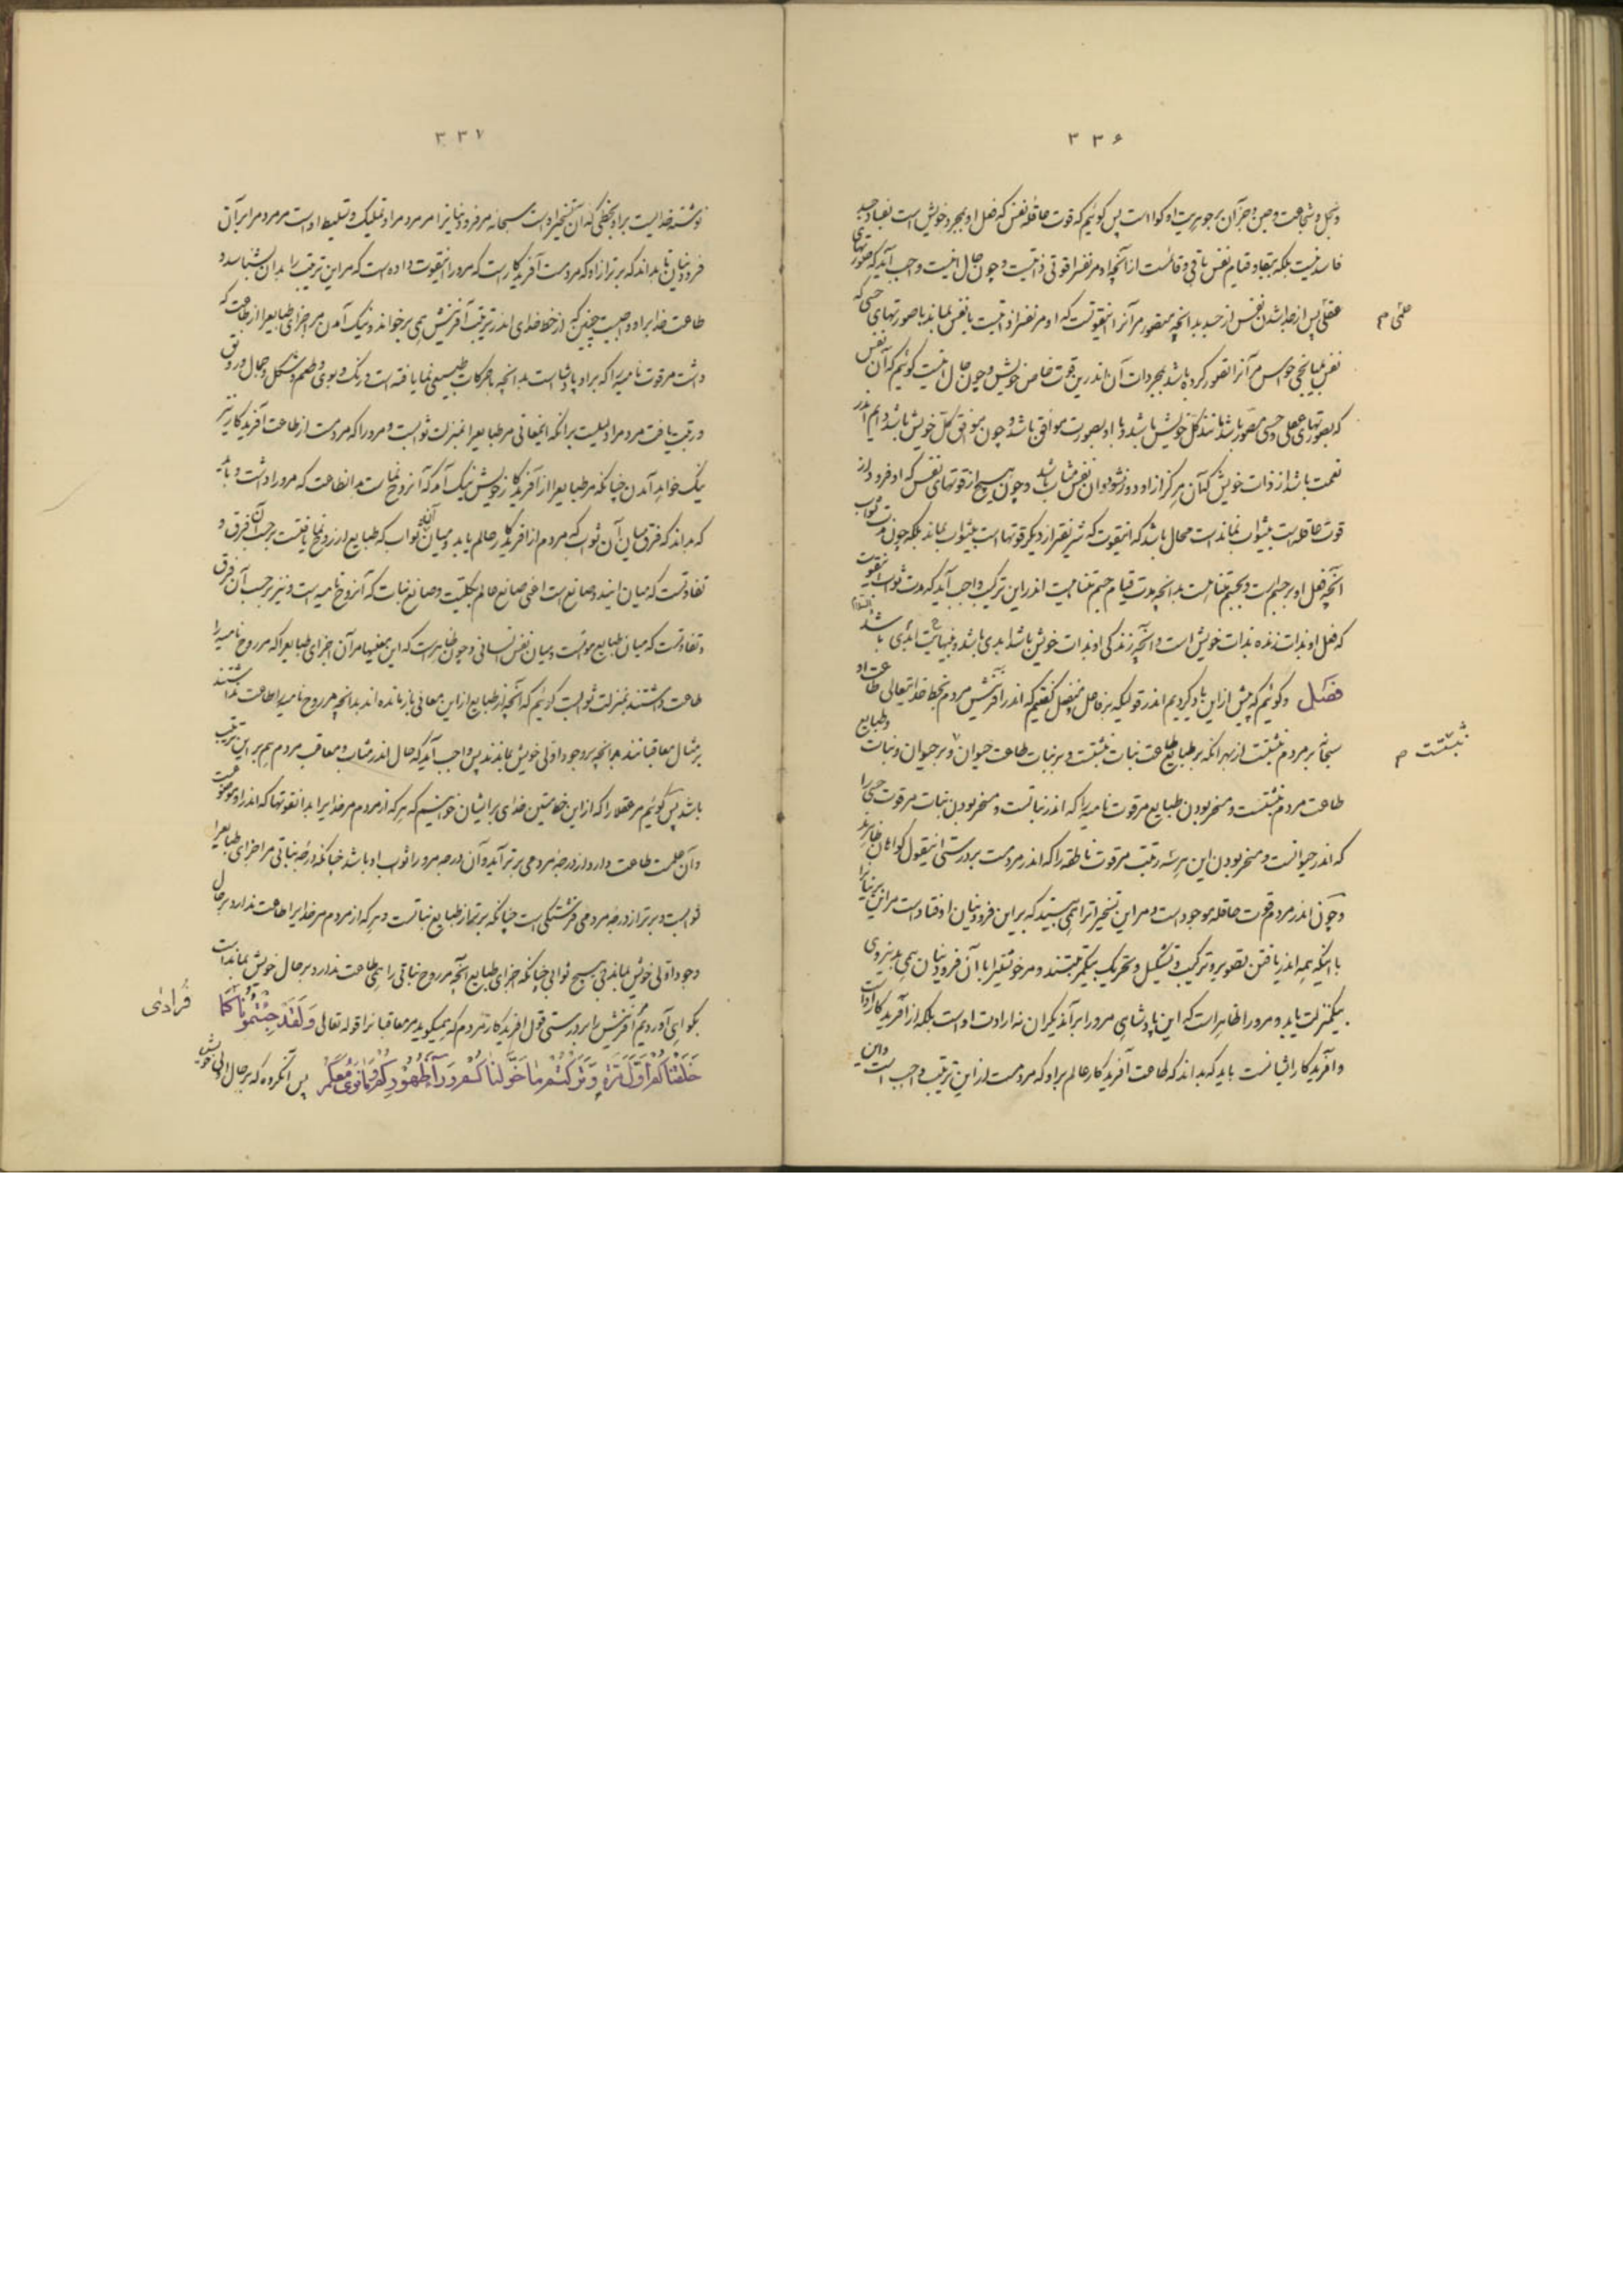 ۳۳۶
و بخل و شجاعت و جبن و جز آن بر جوهریت او گوا است پس گوئیم که قوت عاقله نفس که فعل او بمجرد خویش است بفساد جسد
فاسد نیست بلکه ببقا و قیام نفس باقی و قائمست از آنچه او مر نفس را قوتی ذاتیست و چون حال اینست واجب آید که صورتهای
عقلی پس از جدا شدن نفس از جسد بدانچه متصور مر آنرا اینقوتست که او مر نفس را ذاتیست با نفس بماند با صورتهای حسی که
علمی م
نفس بمیانجی حواس مر آنرا تصور کرده باشد بمجردات آن اندرین قوت خاص خویش و چون حال اینست گوئیم که آن نفس
که بصورتهای عقلی و حسی مصور باشد مانند کل خویش باشد و با او بصورت موافق باشد و چون موافق کل خویش باشد دایم اندر
نعمت باشد از ذات خویش که آن هرگز از او دور نشود و آن نفس مثاب باشد و چون هیچ از قوتهای نفس که او فرود از
قوت عاقله است بیثواب نمانده است محال باشد که اینقوت که شریفتر از دیگر قوتها است بیثواب بماند بلکه چون مدت ثواب
آنچه فعل او بر جسم است و بجسم متناهیست بدانچه مدت قیام جسم متناهیست اندر این ترکیب واجب آید که مدت ثواب اینقوت
که فعل او بذات زنده بذات خویش است و آنچه زندگی او بذات خویش باشد ابدی باشد و بینهایت ابدی باشد
فصل و گوئیم که پیش از این یاد کردیم اندر قولیکه بر فاعل و منفعل گفتیم که اندر آفرینش مردم بخط خدایتعالی طاعت او
سبحانه بر مردم نبشتست از بهر آنکه بر طبایع طاعت نبات نبشتست و بر نبات طاعت حیوان و بر حیوان و نبات و طبایع
نبشتست م
طاعت مردم نبشتست و مسخر بودن طبایع مر قوت نامیه را که اندر نباتست و مسخر بودن نبات مر قوت حسی را
که اندر حیوانست و مسخر بودن این هر سه رتبت مر قوت ناطقه را که اندر مردمست بر درستی اینقول گواهان ظاهرند
و چون اندر مردم قوت عاقله موجود است و مر این تسخیر اتراهمی بیند که بر این فرودینان اوفتاده است مر این برینانرا
با اینکه همه اندر یافتن تصویر و ترکیب و تشکیل و تحریک بیکمرتبتند و مر خویشتن را با آن فرودینان همی بدینروی
بیکمنزلت یابد و مرورا ظاهر است که این پادشاهی مرورا بر آندیگران نه ارادت او است بلکه از آفریدگار اوست
و آفریدگار ایشانست باید که بداند که طاعت آفریدگار عالم بر او که مردمست از این ترتیب واجب است و این
۳۳۷
نوشته خدایست بر او بخطی که آن تسخیر او است سبحانه مر فرودینانرا مر مردم را و تملیک و تسلیط او است مر مردم را بر آن
فرودینان تا بداند که برتر از او که مردمست آفریدگار است که مرورا اینقوت داده است که مر این ترتیب را بدان بشناسد و
طاعت خدایرا بر او واجبست چنین که از خط خدای اندر ترتیب آفرینش همی برخواند و نیک آمدن مر اجزای طبایع را از طاعت که
داشت مر قوت نامیه را که بر او پادشا است بدانچه با حرکات طبیعی نما یافته است و رنگ و بوی و طعم و شکل و جمال و رونق
و رتبت یافت مر مردم را دلیلیست بر آنکه اینمعانی مر طبایع را بمنزلت ثوابست و مرورا که مردمست از طاعت آفریدگار نیز
نیک خواهد آمدن چنانکه مر طبایع را از آفریدگار خویش نیک آمد که آن روح نماست بدانطاعت که مرورا داشت و باید
که بداند که فرق میان آن ثواب که مردم از آفریدگار عالم یابد و میان آن ثواب که طبایع از روح نما یافتست بر حسب آن فرق و
تفاوتست که میان ایندو صانع است اعنی صانع عالم بکلیت و صانع نبات که آن روح نامیه است و نیز بر حسب آن فرق
و تفاوتست که میان طبایع مواتست و میان نفس انسانی و چون ظاهر است که این معنیها مر آن اجزای طبایع را که مر روح نامیه را
طاعت داشتند بمنزلت ثوابست گوئیم که آنچه از طبایع از این معانی باز مانده اند بدانچه مر روح نامیه را طاعت نداشتند
بر مثال معاقبانند بدانچه بر وجود اولی خویش بماندند پس واجب آید که حال اندر مثاب و معاقب مردم هم بر این ترتیب
باشد پس گوئیم مر عقلا را که از این خط متین خدای بر ایشان خواندیم که هر که از مردم مر خدایرا بدانقوتها که اندر او موجود است
و آن علمست طاعت دارد از درجه مردمی برتر آید و آن درجه مرورا ثواب او باشد چنانکه درجه نباتی مر اجزای طبایع را
ثوابست و برتر از درجه مردمی فرشتگی است چنانکه برتر از طبایع نباتست و هر که از مردم مر خدایرا طاعت ندارد بر حال
وجود اولی خویش بماند بی هیچ ثوابی چنانکه اجزای طبایع آنچه مر روح نباتی را همی طاعت ندارد بر حال خویش بماند است
بگواهی آوردیم آفرینش را بر درستی قول آفریدگار مردم که همیگوید مر معاقبانرا قوله تعالی وَلَقَدْ جِئْتُمُونَا كَمَا
فُرادىٰ
خَلَقْنَاكُمْ اَوَّلَ مَرَّةٍ وَتَرَكْتُمْ مَا خَوَّلْنَاكُمْ وَرَآءَ ظُهُورِكُمْ وَمَا نَرىٰ مَعَكُمْ پس آنگروه که بر حال اولی خویش